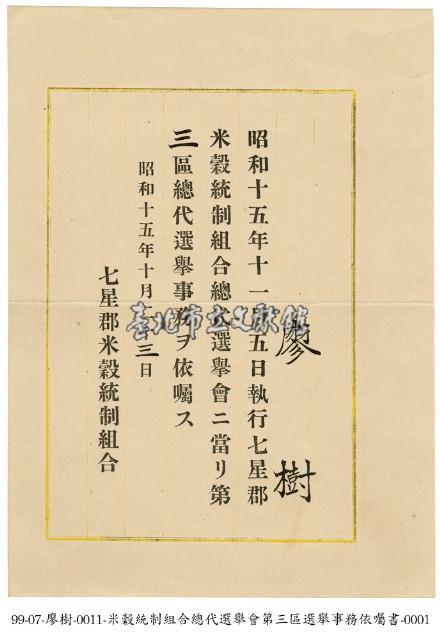 廖樹
昭和十五年十一五日執行七星郡
米穀統制組合總代選舉會ニ當リ第
三區總代選舉事務ヲ依囑ス
昭和十五年十月三日
七星郡米穀統制組合
臺北市立文獻館
99-07-廖樹-0011-米穀統制組合總代選舉會第三區選舉事務依囑書-0001